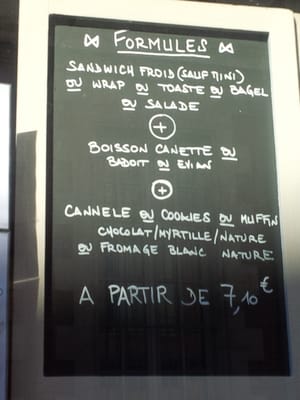 FORMULES
SANDWICH FROID (SAUF MINI)
OU WRAP OU TOASTE OU BAGEL
OU SALADE
+
BOISSON CANETTE OU
BADOIT OU EVIAN
+
CANNELE OU COOKIES OU MUFFIN
CHOCOLAT/MYRTILLE/NATURE
OU FROMAGE BLANC NATURE
A PARTIR DE 7,10€